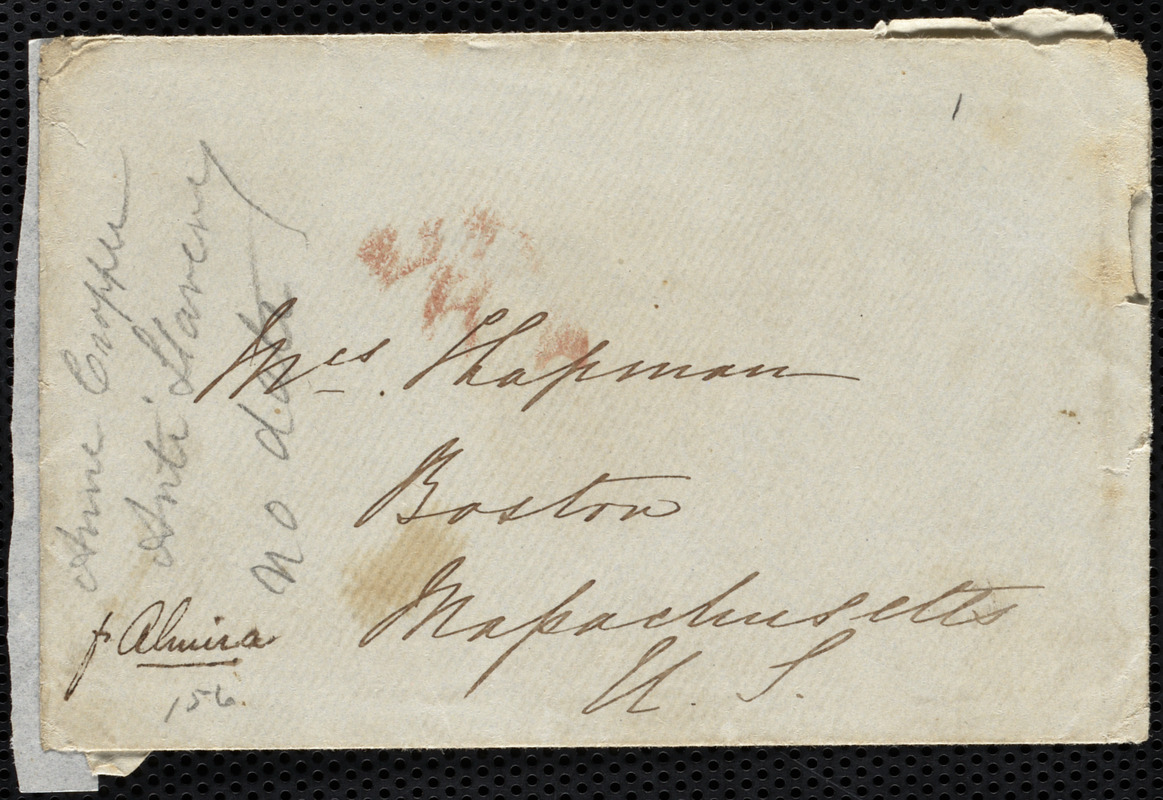 Mrs. Chapman
Boston
Massachusetts
U. S.
p Almira
156.
Anne Cropper
Anti Slavery
no date